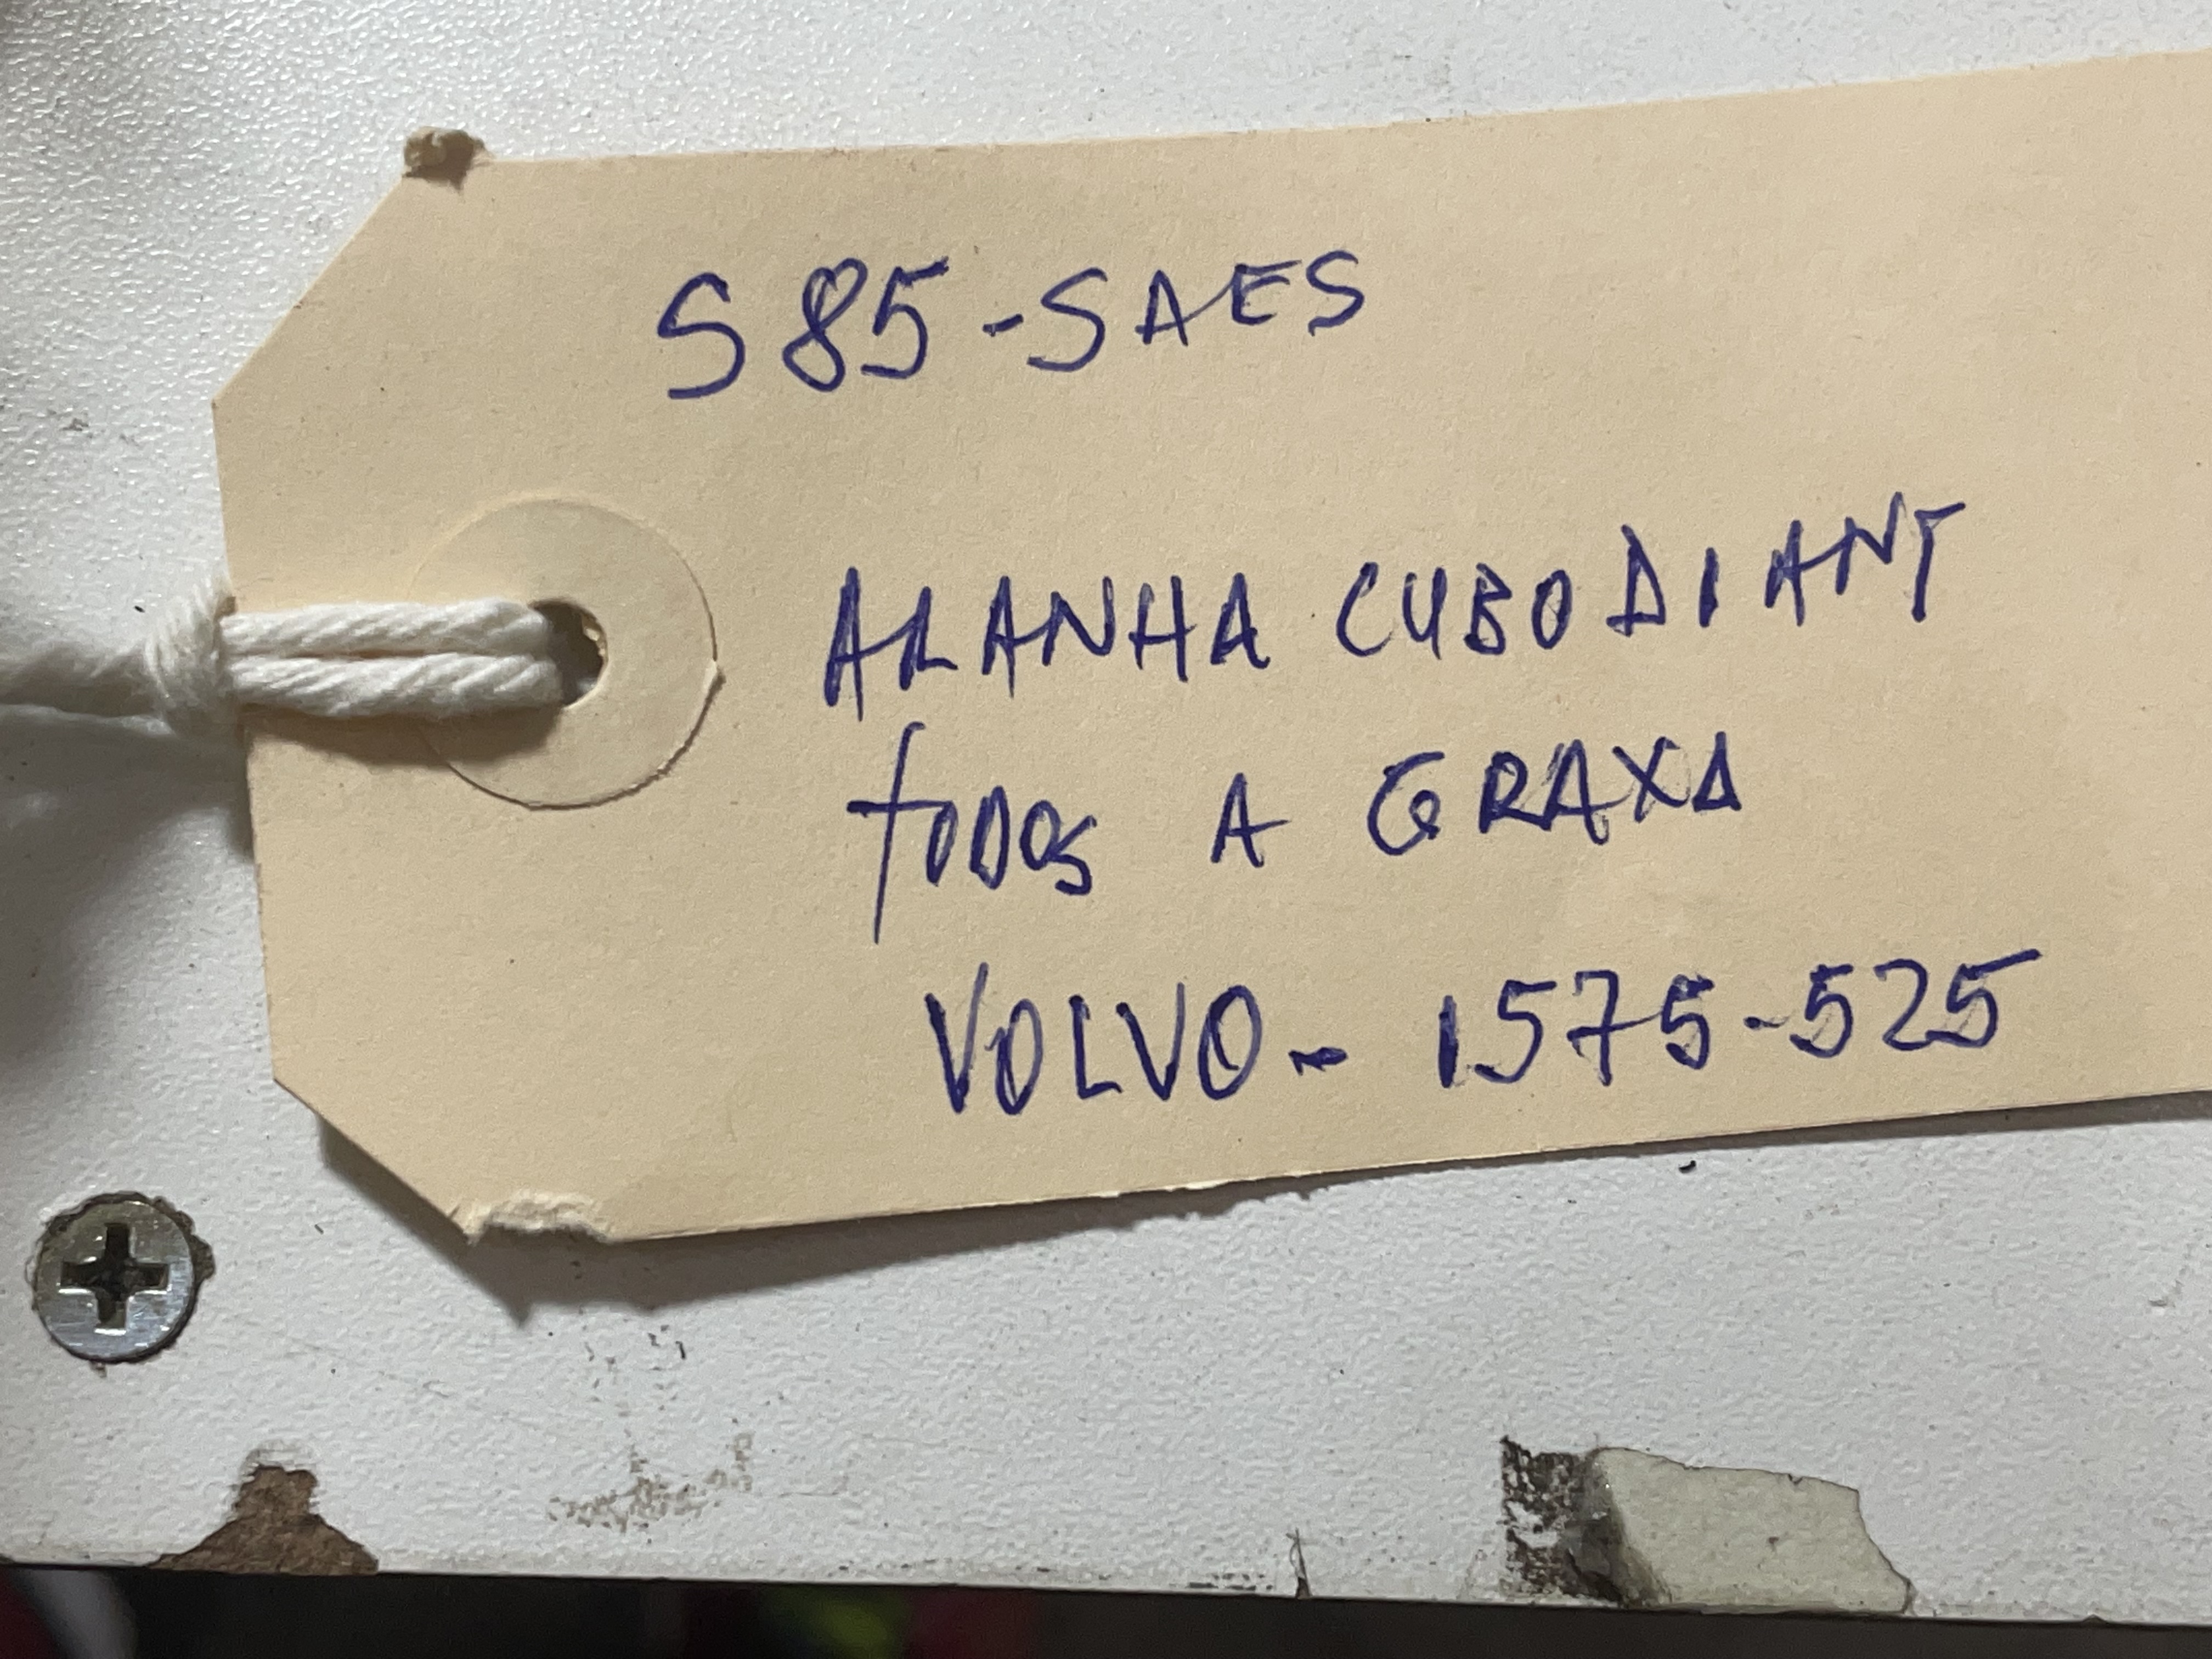 S85-SAES
ARANHA CUBO DIANT
TODOS A GRAXA
VOLVO- 1575-525